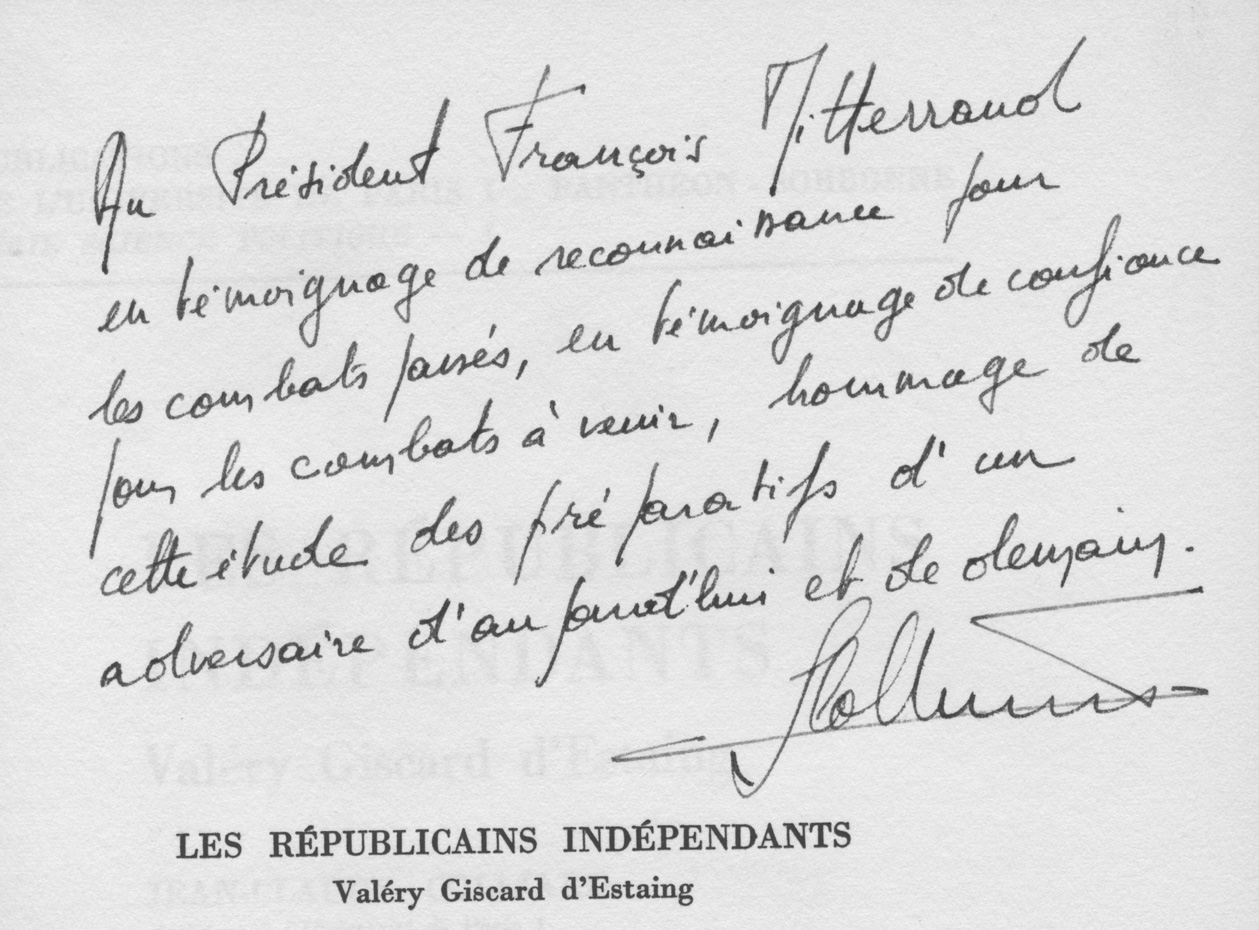 Au Président François Mitterrand
en témoignage de reconnaissance pour
les combats passés, en témoignage de confiance
pour les combats à venir, hommage de
cette étude des préparatifs d'un
adversaire d'aujourd'hui et de demain.
LES RÉPUBLICAINS INDÉPENDANTS
Valéry Giscard d'Estaing